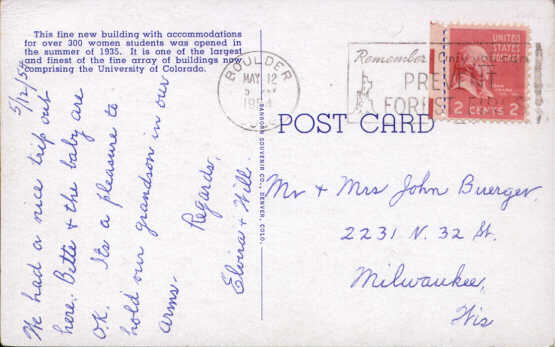 This fine new building with accommodations
for over 300 women students was opened in
the summer of 1935. It is one of the largest
and finest of the fine array of buildings now
comprising the University of Colorado.
5/12/54
We had a nice trip out
here. Bette + the baby are
O.K. It's a pleasure to
hold our grandson in our
arms.
Regards,
Elvira + Will.
SANBORN SOUVENIR CO., DENVER, COLO.
BOULDER
MAY 12
1954
Remember! Only you can
PREVENT
FOREST FIRES
UNITED
STATES
POSTAGE
2 CENTS 2
POST CARD
Mr + Mrs John Buerger.
2231 N. 32 St.
Milwaukee,
Wis